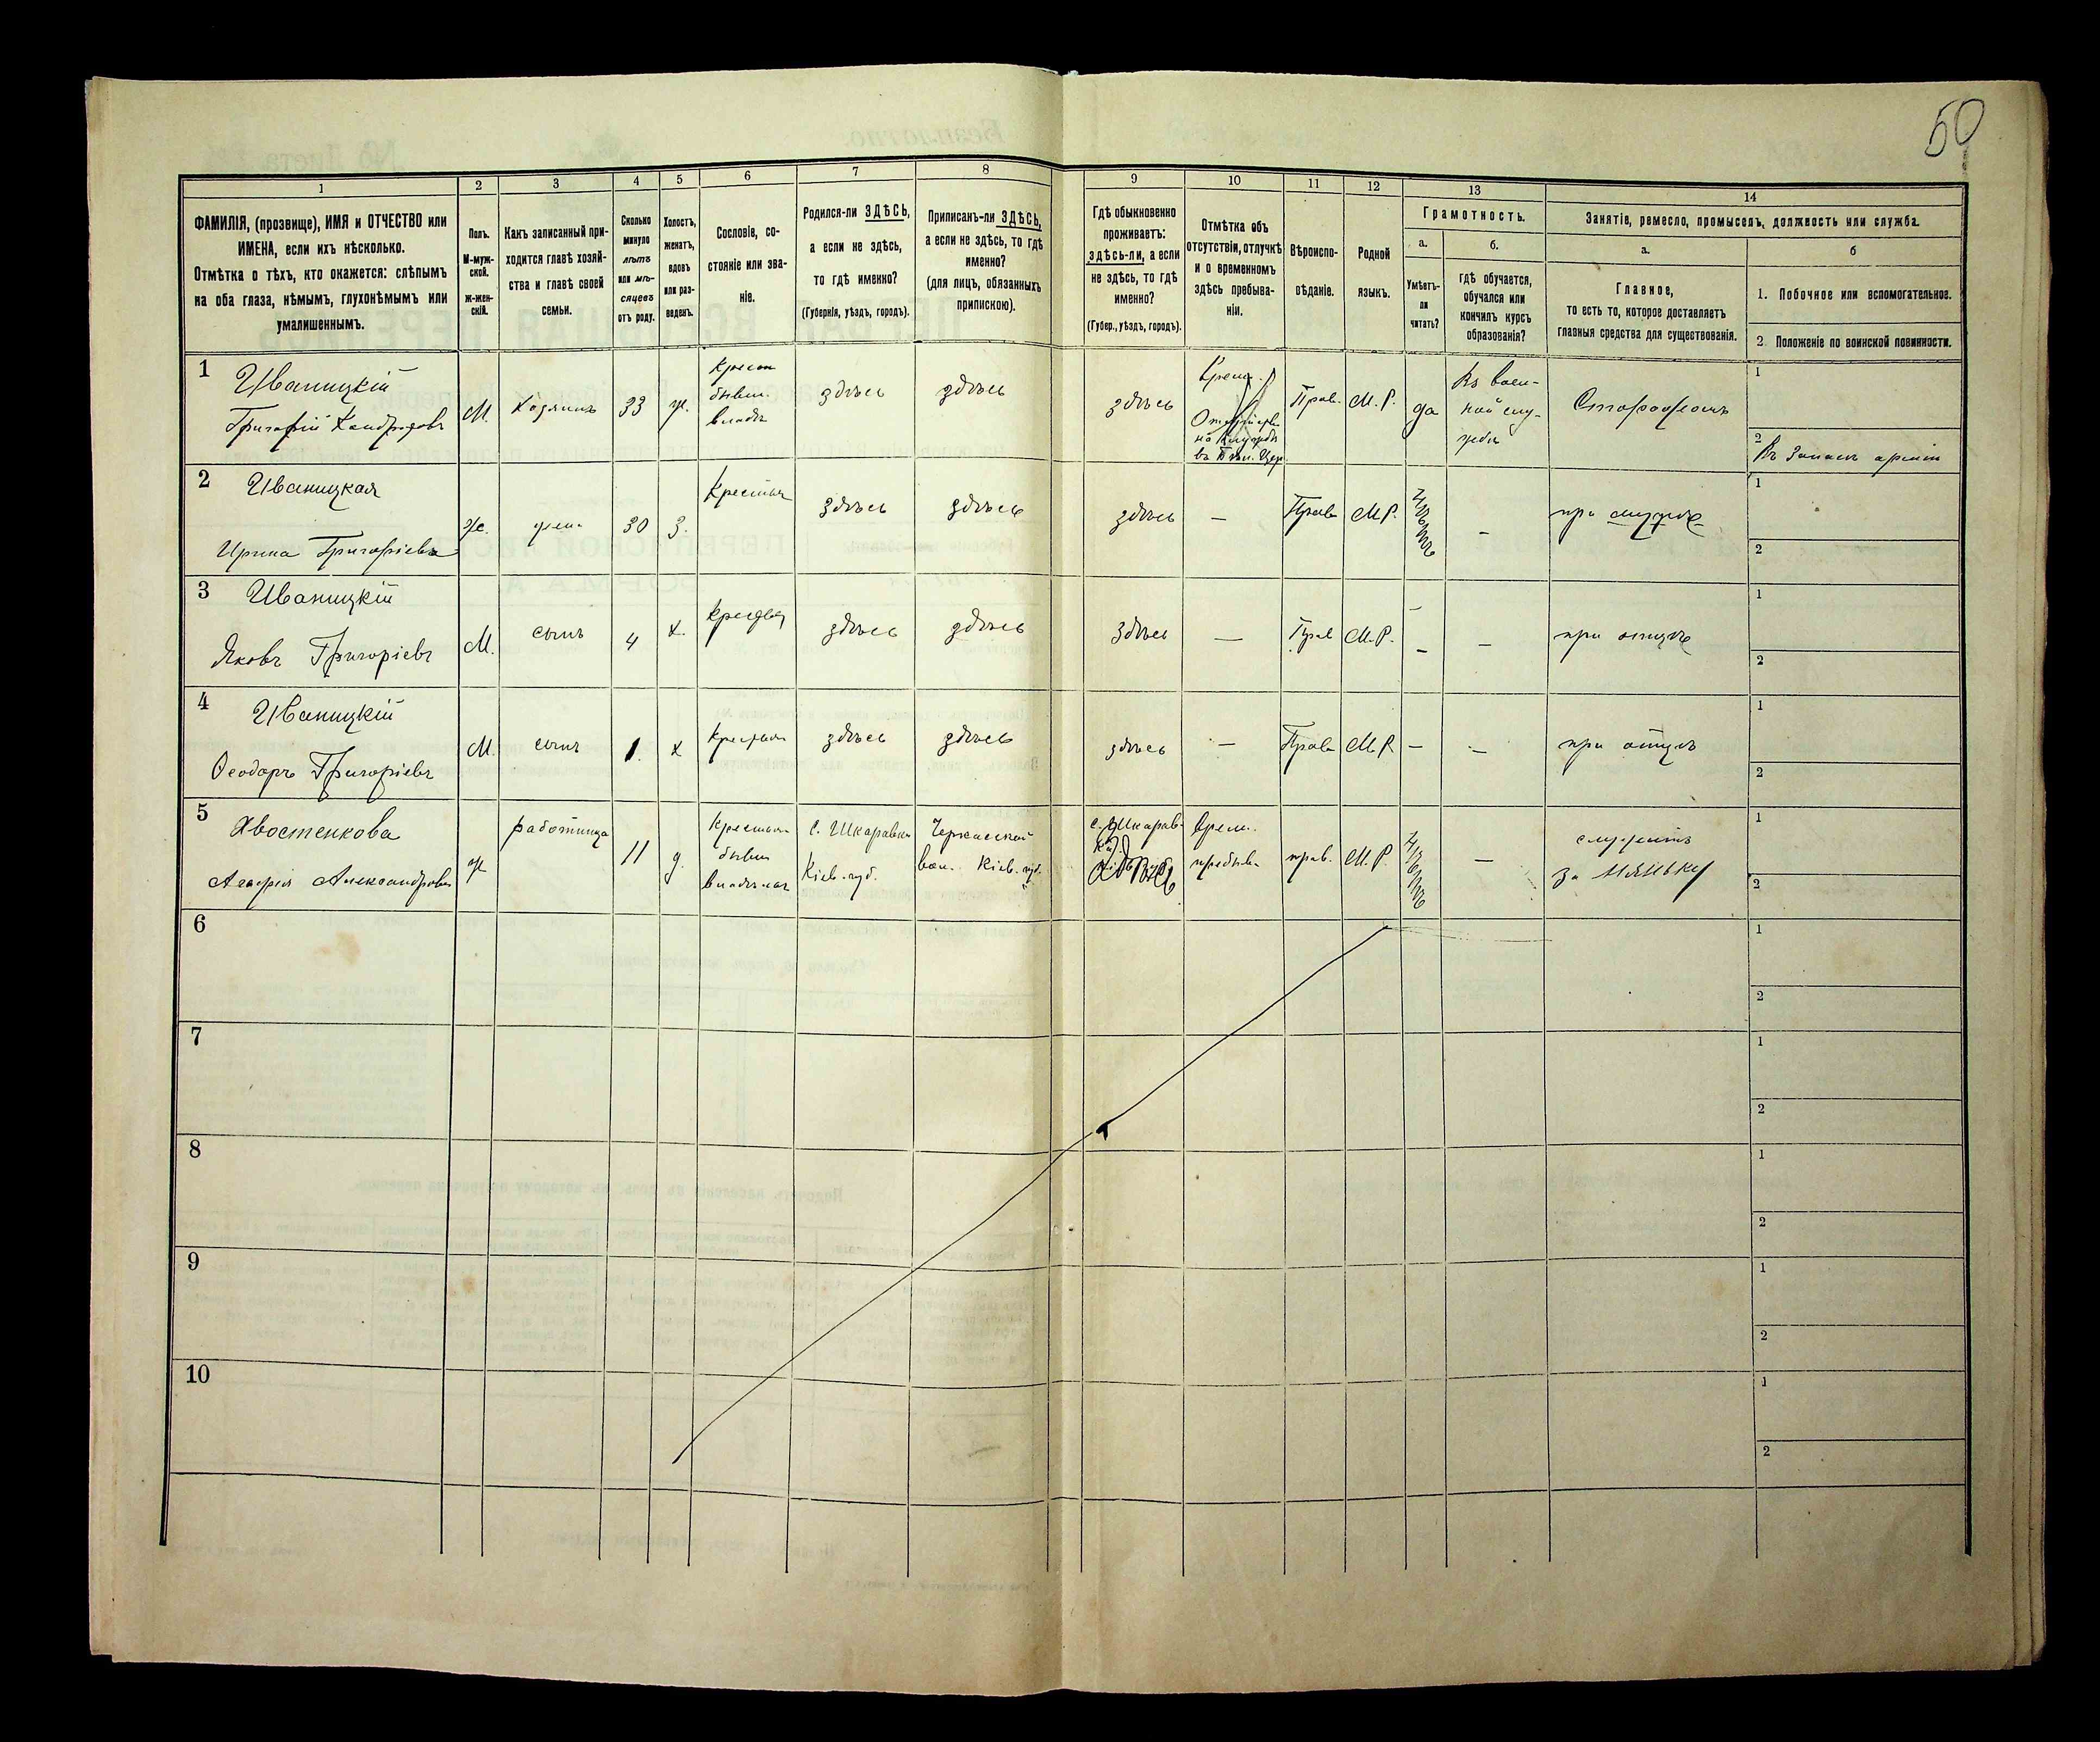 50
1 2 3 4 5 6 7 8 9 10 11 12 13 14
ФАМИЛІЯ, (прозвище), ИМЯ и ОТЧЕСТВО или
ИМЕНА, если ихъ нѣсколько.
Отмѣтка о тѣхъ, кто окажется: слѣпымъ
на оба глаза, нѣмымъ, глухонѣмымъ или
умалишеннымъ.
Полъ.
М-муж-
ской.
ж-жен-
скій.
Какъ записанный при-
ходится главѣ хозяй-
ства и главѣ своей
семьи.
Сколько
минуло
лѣтъ
или мѣ-
сяцевъ
отъ роду.
Холостъ,
женатъ,
вдовъ
или раз-
веденъ.
Сословіе, со-
стояніе или зва-
ніе.
Родился-ли ЗДѢСЬ,
а если не здѣсь,
то гдѣ именно?
(Губернія, уѣздъ, городъ).
Приписанъ-ли ЗДѢСЬ,
а если не здѣсь, то гдѣ
именно?
(для лицъ, обязанныхъ
припискою).
Гдѣ обыкновенно
проживаетъ:
здѣсь-ли, а если
не здѣсь, то гдѣ
именно?
(Губер., уѣздъ, городъ).
Отмѣтка объ
отсутствіи, отлучкѣ
и о временномъ
здѣсь пребыва-
ніи.
Вѣроиспо-
вѣданіе.
Родной
языкъ.
Грамотность.
а.
Умѣетъ-
ли
читать?
б.
гдѣ обучается,
обучался или
кончилъ курсъ
образованія?
Занятіе, ремесло, промыселъ, должность или служба.
а.
Главное,
то есть то, которое доставляетъ
главныя средства для существованія.
б
1. Побочное или вспомогательное.
2. Положеніе по воинской повинности.
1
Иваницкій
Григорій
М.
Хазяинъ
33
ж.
Крест
бывш.
владѣ
здѣсь
здѣсь
здѣсь
Врем.
на
въ
Прав.
М. Р.
да
Въ воен-
ной слу-
жбѣ
1
2
Въ Запасѣ арміи
2
Иваницкая
Ирина Григоріева
Ж.
жена
30
З.
Крестьян
здѣсь
здѣсь
здѣсь
—
Прав
М.Р.
—
при мужѣ
1
2
3
Иваницкій
Яковъ Григоріевъ
М.
сынъ
4
Х.
здѣсь
здѣсь
здѣсь
—
Прав
М.Р.
–
—
при отцѣ
1
2
4
Иваницкій
Ѳеодоръ Григоріевъ
М.
сынъ
1.
Х
Крестьян
здѣсь
здѣсь
здѣсь
—
Прав
М.Р.
—
—
при отцѣ
1
2
5
Хвостенкова
Агафія Александрова
ж
работница
11
д.
Крестьян
бывш
с. Шкаравки
Кіев. губ.
вол. Кіев. губ.
с. Шкарав-
Врем.
пребыв.
прав.
М. Р.
—
служитъ
за няньку
1
2
6
1
2
7
1
2
8
1
2
9
1
2
10
1
2